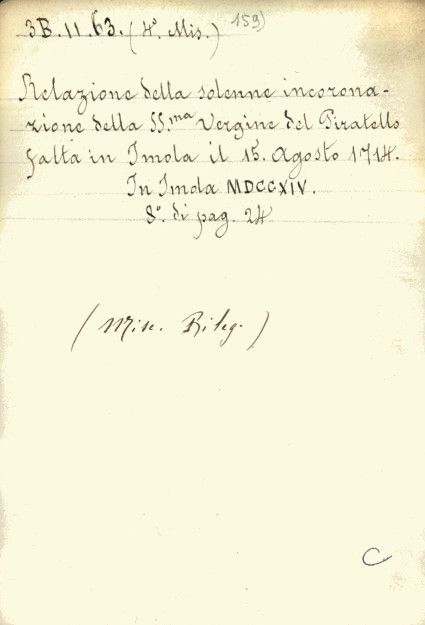 3B.11.63. (4º Mis.) 159)
Relazione della solenne incorona-
zione della SS.ma Vergine del Piratello
fatta in Imola il 15. Agosto 1714.
In Imola MDCCXIV.
8º. di pag. 24
(Misc. Rileg.)
C